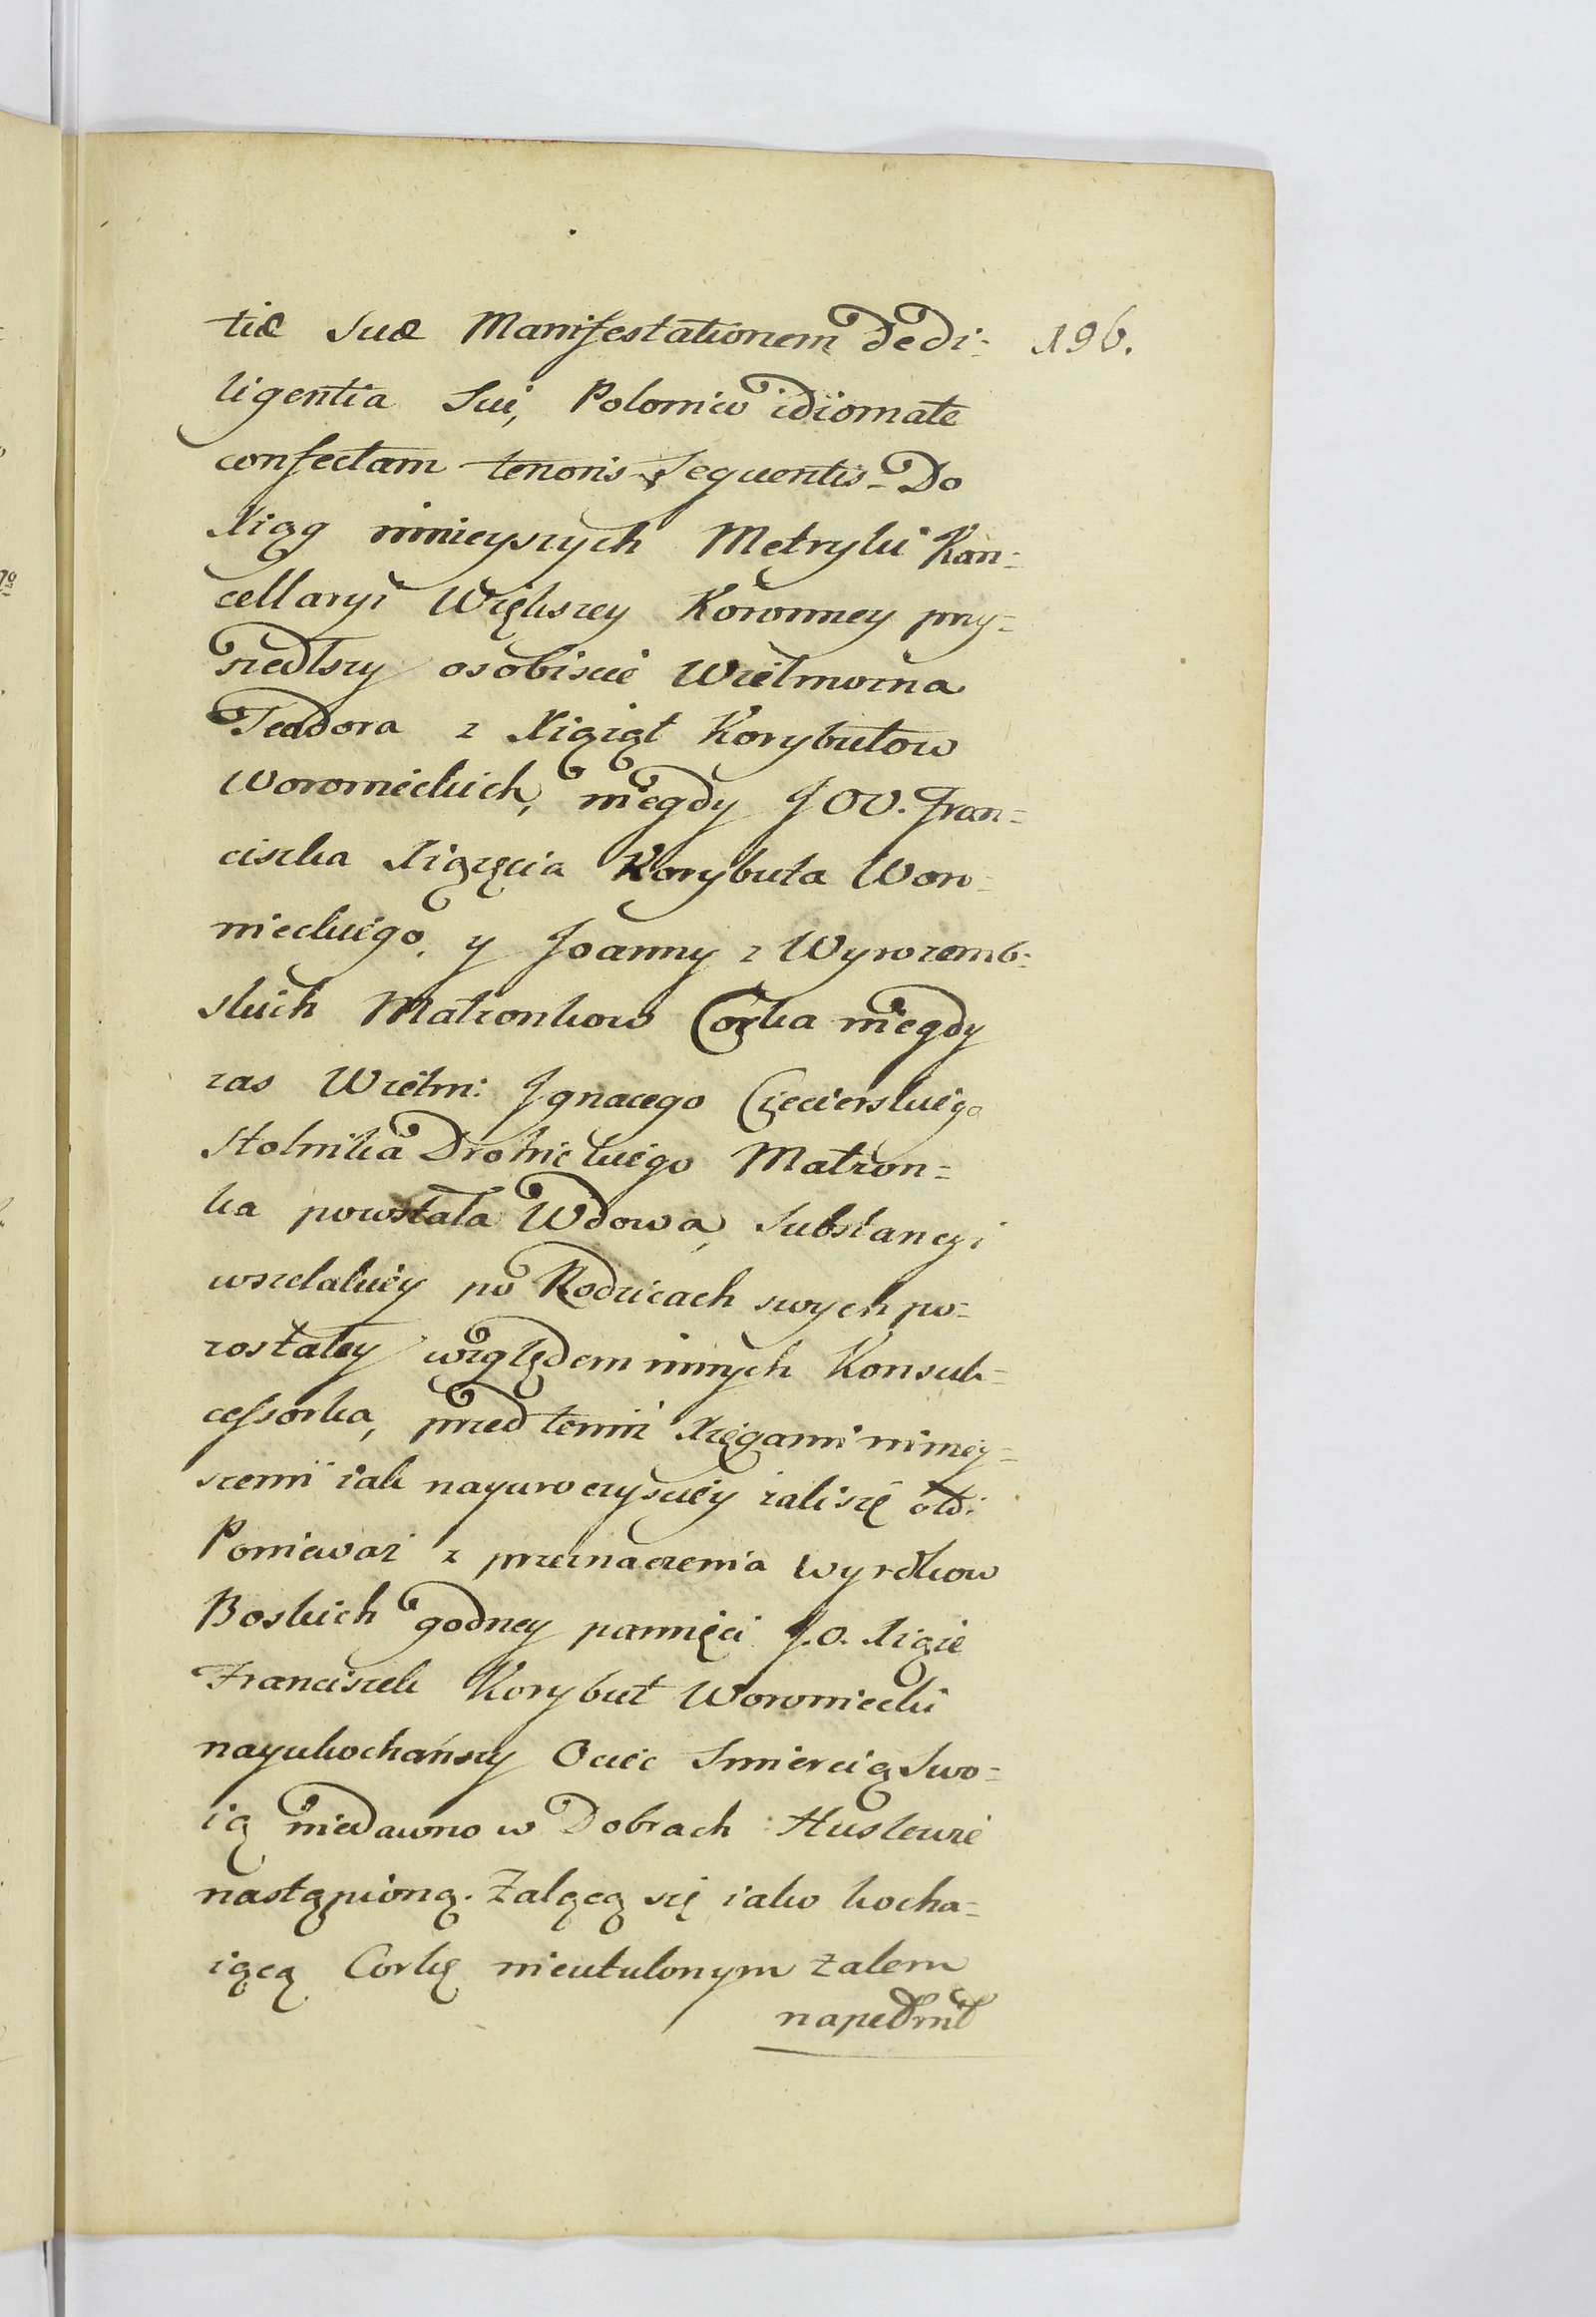 tiæ suæ Manifestationem de di= 196.
ligentia Sui, Polonico idiomate
confectam tenoris sequentis - Do
Xiąg ninieyszych Metryki Kan=
cellaryi Większey Koronney przy=
szedłszy osobiscie Wielmożna
Teodora z Xiąząt Korybutow
Woronieckich, niegdy JOO. Fran=
ciszka Xiązęcia Korybuta Woro=
nieckiego, y Joanny z Wyrozemb=
skich Małżonkow Corka niegdy
zas Wielm: Jgnacego Cięcierskiego
Stolnika Drohickiego Małżon=
ka powstała Wdowa, Substancyi
wszelakiey po Rodzicach swych po=
zostałey względem innych Konsuk=
cessorka, przed temi Xięgami niniey=
szemi iak nayuroczysciey żali się otd:
Poniewaz z przeznaczenia wyrokow
Boskich godney pamięci J.O. Xiąże
Franciszek Korybut Woroniecki
nayukochańszy Ociec Smiercią Swo=
ią niedawno w Dobrach Huslewie
nastąpioną. Zalącą się iako kocha=
iącą Corkę nieutulonym żalem
napełnił